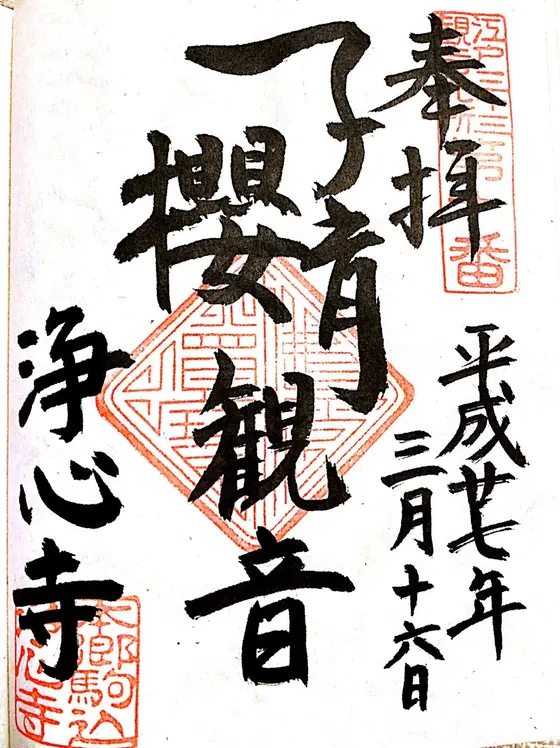 奉拝
江戸三十三
第十番
平成廿七年
三月十六日
子育
櫻観音
浄心寺
本郷駒込
浄心寺